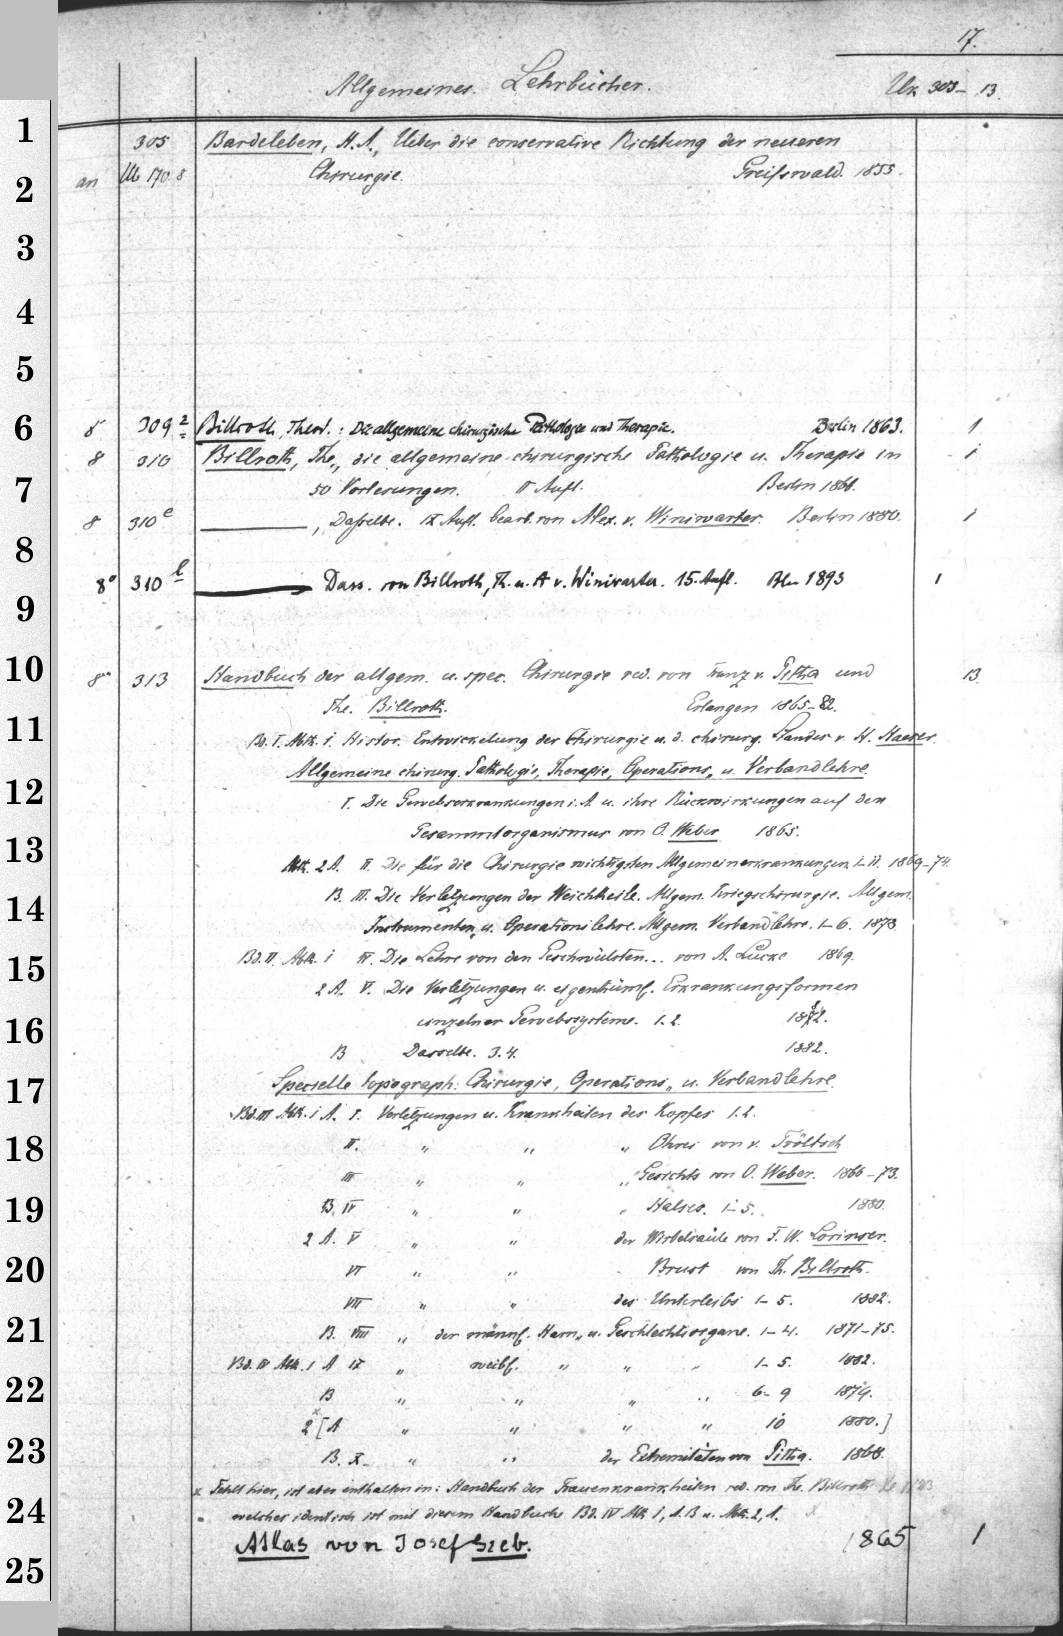 17.
Allgemeines. Lehrbücher. Uk 305– 13.
305 Bardeleben, H. A., Ueber die conservative Richtung der neueren
an Ub 170 8 Chirurgie. Greifswald. 1855.
8 309 2 Billroth, Theod.: Die allgemeine chirurgische Pathologie und Therapie. Berlin 1863. 1
8 310 Billroth, Th., die allgemeine chirurgische Pathologie u. Therapie in 1
50 Vorlesungen. II Aufl. Berlin 1866.
8 310 e ——, Dasselbe. IX Aufl. bearb. von Alex. v. Winiwarter. Berlin 1880. 1
8° 310 l —— Dass. von Billroth, Th. u. A v. Winiwarter. 15. Aufl. Bln 1893 1
8° 313 Handbuch der allgem. u. spec. Chirurgie red. von Franz v. Pitha und 13
Th. Billroth. Erlangen 1865–82.
Bd. I. Abth. 1. Histor. Entwickelung der Chirurgie u. d. chirurg. Standes v. H. Haeser.
Allgemeine chirurg. Pathologie, Therapie, Operations„ u. Verbandlehre.
I. Die Gewebserkrankungen i. A. u. ihre Rückwirkungen auf den
Gesammtorganismus von O. Weber 1865.
Abth. 2 A. II. Die für die Chirurgie wichtigsten Allgemeinerkrankungen 1–11. 1869–74.
B. III. Die Verletzungen der Weichtheile. Allgem. Kriegschirurgie. Allgem.
Instrumenten„ u. Operationslehre. Allgem. Verbandlehre. 1–6. 1873
Bd. II. Abth. 1 IV. Die Lehre von den Geschwülsten... von A. Lücke 1869.
2 A. V. Die Verletzungen u. eigenthüml. Erkrankungsformen
einzelner Gewebssysteme. 1.2. 1882.
B Dasselbe. 3.4. 1882.
Specielle topograph. Chirurgie, Operations„ u. Verbandlehre.
Bd. III Abth. 1 A. I. Verletzungen u. Krankheiten des Kopfes 1.2.
II. „ „ „ Ohres von v. Tröltsch
III „ „ „ Gesichts von O. Weber. 1866–73.
B. IV „ „ „ Halses. 1–5. 1880.
2 A. V „ „ der Wirbelsäule von F. W. Lorinser.
VI „ „ Brust von Th. Billroth.
VII „ „ des Unterleibs 1–5. 1882.
B. VIII „ der männl. Harn„ u. Geschlechtsorgane. 1–4. 1871–75.
Bd. IV Abth. 1 A IX „ weibl. „ „ „ 1–5. 1882.
B „ „ „ „ 6–9 1879.
2 x [A „ „ „ „ 10 1880.]
B. X. „ „ der Extremitäten von Pitha. 1868.
x Fehlt hier, ist aber enthalten in: Handbuch der Frauenkrankheiten red. von Th. Billroth
welches identisch ist mit diesem Handbuche Bd. IV Abth 1, A. B u. Abth. 2, A.
Atlas von Josef Szeb. 1865 1
1
2
3
4
5
6
7
8
9
10
11
12
13
14
15
16
17
18
19
20
21
22
23
24
25